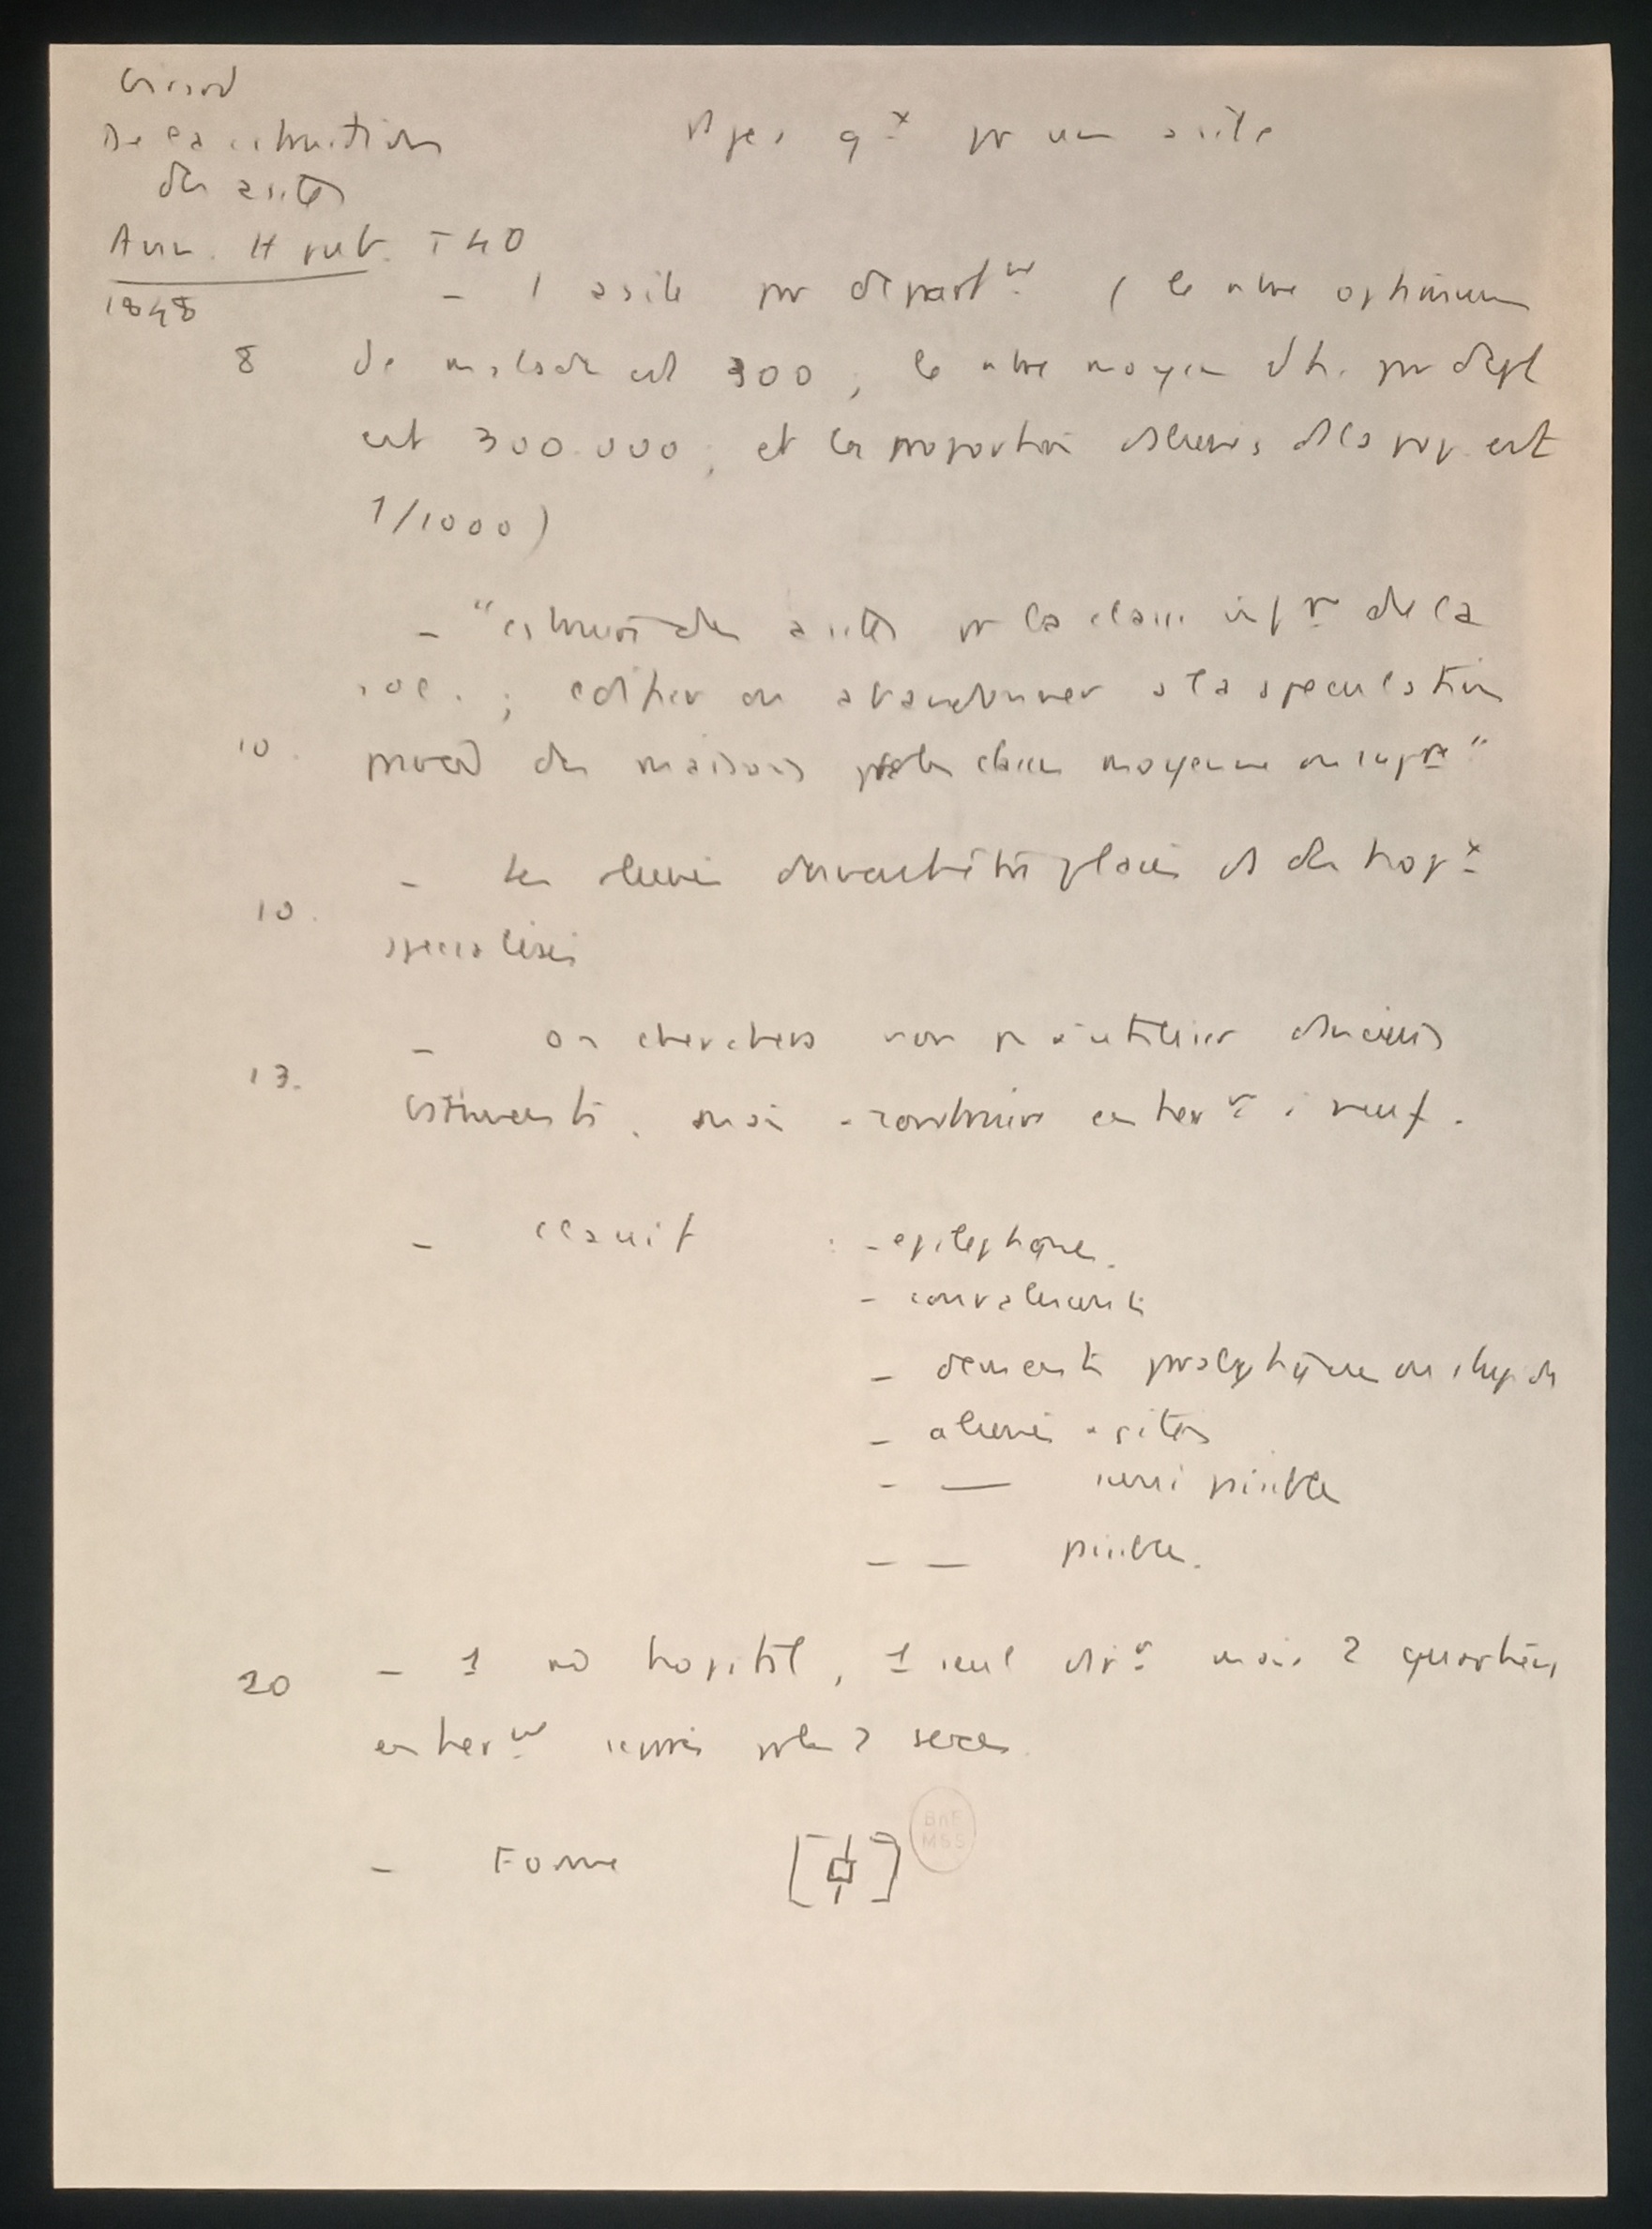 Girard
De la cstruction
des asiles
Ann. H pub. T 40
1848
Ppes gx pr un asile
- 1 asile par départnt (le nbre optimum
8 de malades est 300, le nbre moyen d'h. par dept
est 300.000, et la proportion d'aliénés ds la pop. est
1/1000)
- "cstruire des asiles pr la classe infre de la
soc. ; édifier ou abandonner à la spéculation
10. privée des maisons pr les classes moyenne ou supre"
- les aliénés devraient être placés ds des hopx
10.
spécialisés
- on cherchera non pas à utiliser d'anciens
13.
bâtiments, mais à construire entièrnt à neuf.
- classif : - épileptiques.
- convalescents
- déments paralytiques ou stupides
- aliénés agités
- — semi paisibles
- — paisibles.
20 - 1 hopital, 1 seul dirr mais 2 quartiers
entièrnt séparés pr les 2 sexes
- Forme
BnF
MSS